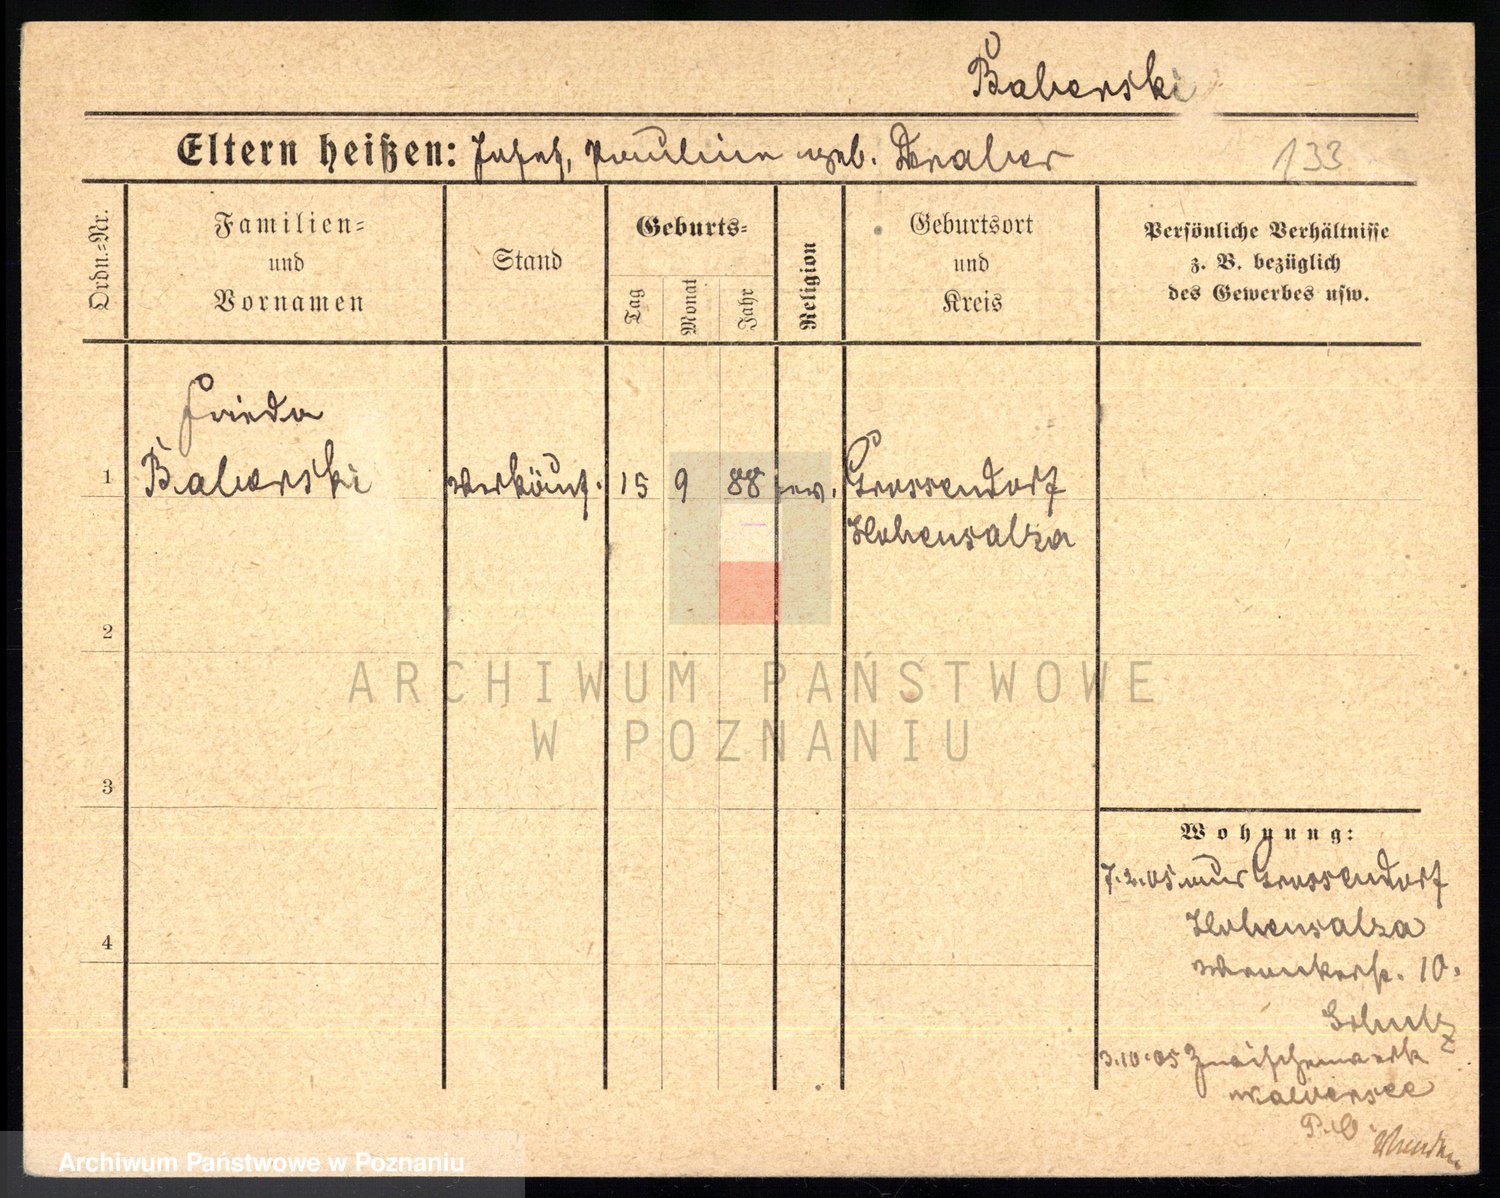 Baberski
Eltern heißen: Josef, Pauline geb. Draber
133
Ordn.-Nr.
Familien-
und
Vornamen
Stand
Geburts-
Tag
Monat
Jahr
Religion
Geburtsort
und
Kreis
Persönliche Verhältnisse
z. B. bezüglich
des Gewerbes usw.
Frieda
1 Baberski Verkäuf. 15 9 88 Grossendorf
Hohensalza
2
3
4
Wohnung:
7.2.05 aus Grossendorf
Hohensalza
Wronkerstr. 10.
3.10.05
P.O.
ARCHIWUM PAŃSTWOWE
W POZNANIU
Archiwum Państwowe w Poznaniu